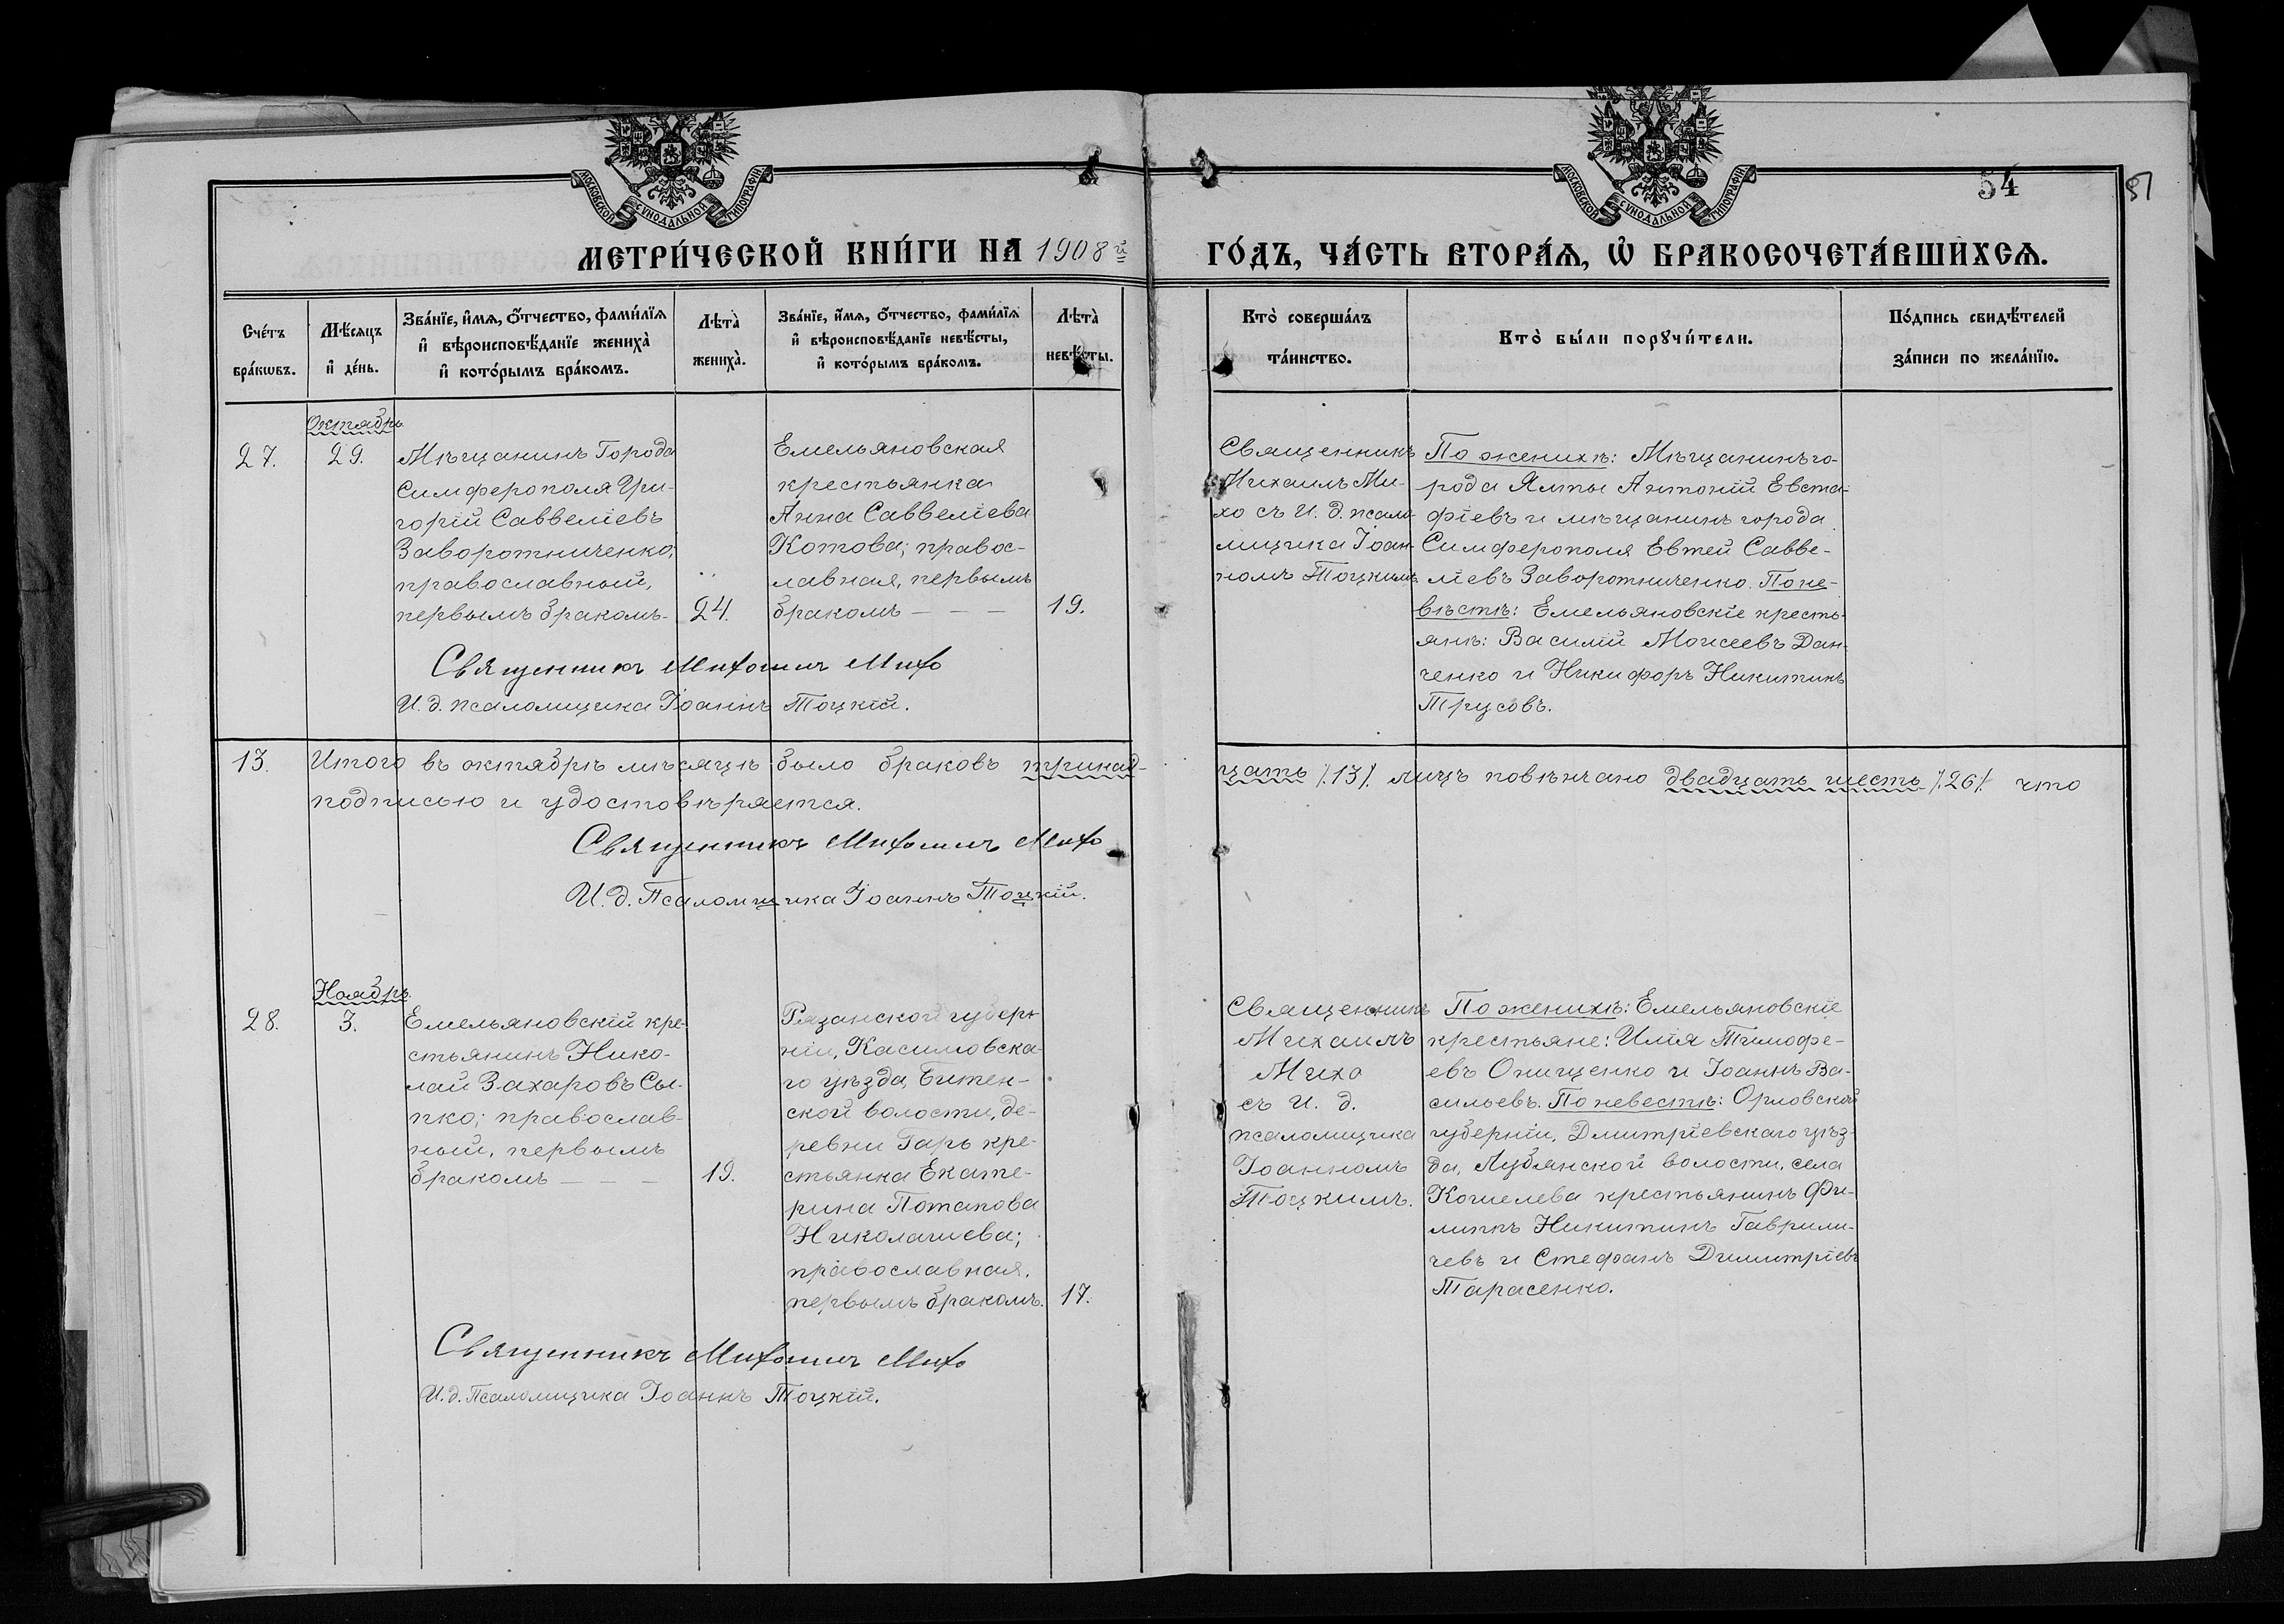 МОСКОВСКОЙ СѴНОДАЛЬНОЙ ТИПОГРАФІИ
МОСКОВСКОЙ СѴНОДАЛЬНОЙ ТИПОГРАФІИ
54
МЕТРИ́ЧЕСКОЙ КНИ́ГИ НА 1908й
ГО́ДЪ, ЧА́СТЬ ВТОРА́Я, Ѡ БРАКОСОЧЕТА́ВШИХСЯ.
Сче́тъ бра́кѡвъ.
Мѣ́сяцъ и де́нь.
Зва́нїе, и́мя, о́тчество, фами́лїя
и вѣроисповѣ́данїе жениха̀
и кото́рымъ бра́комъ.
Лѣта̀ жениха̀.
Зва́нїе, и́мя, о́тчество, фами́лїя
и вѣроисповѣ́данїе невѣ́сты,
и кото́рымъ бра́комъ.
Лѣта̀ невѣ́сты.
Кто̀ соверша́лъ
та́инство.
Кто̀ бы́ли порꙋчи́тели.
По́дпись свидѣ́телей
за́писи по жела́нїю.
Октябрь
27.
29.
Мѣщанинъ Города
Симферополя Гри-
горій Саввеліевъ
Заворотниченко;
православный,
первымъ бракомъ-
24.
Емельяновская
крестьянка
Анна Саввеліева
Котова; правос-
лавная, первымъ
бракомъ — — —
19.
Священникъ
Михаилъ Ми-
хо съ И. д. псало-
мщика Іоан-
номъ Тоцкимъ
По женихѣ: Мѣщанинъ го-
рода Ялты Антоній Евста-
фіевъ и мѣщанинъ города
Симферополя Евтей Савве-
ліевъ Заворотниченко. По не-
вѣстѣ: Емельяновскіе кресть-
янѣ: Василій Моисеевъ Дан-
ченко и Никифоръ Никитинъ
Трусовъ.
Священникъ Михаилъ Михо
И. д. псаломщика Іоаннъ Тоцкій.
13.
Итого въ октябрѣ мѣсяцѣ было браковъ тринад-
цать /.13/. лицъ повѣнчано двадцать шесть /.26/. что
подписью и удостовѣряется.
Священникъ Михаилъ Михо
И. д. Псаломщика Іоаннъ Тоцкій.
Ноябрь
28.
3.
Емельяновскій кре-
стьянинъ Нико-
лай Захаровъ Сы-
пко; православ-
ный, первымъ
бракомъ — — —
19.
Рязанской губерн
ніи, Касимовска-
го уѣзда, Битен-
ской волости, де-
ревни Гарь кре-
стьянка Екате-
рина Потапова
Николашева;
православная,
первымъ бракомъ.
17.
Священникъ
Михаилъ
Михо
съ И. д.
псаломщика
Іоанномъ
Тоцкимъ.
По женихѣ: Емельяновскіе
крестьяне: Илія Тимофе-
евъ Онищенко и Іоаннъ Ва-
сильевъ. По невестѣ: Орловской
губерніи, Дмитріевскаго уѣз-
да, Лубянской волости, села
Кошелева крестьянинъ Фи-
липпъ Никитинъ Гаврили-
чевъ и Стефанъ Димитріевъ
Тарасенко.
Священникъ Михаилъ Михо
И. д. Псаломщика Іоаннъ Тоцкій.